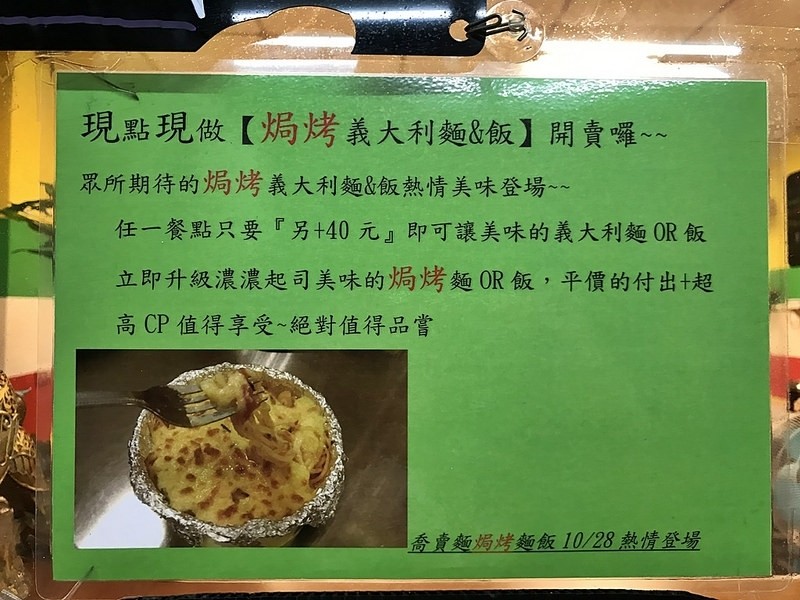 現點現做【焗烤義大利麵&飯】開賣囉~~
眾所期待的焗烤義大利麵&飯熱情美味登場~~
任一餐點只要『另+40 元』即可讓美味的義大利麵 OR 飯
立即升級濃濃起司美味的焗烤麵 OR 飯，平價的付出+超
高 CP 值得享受~絕對值得品嘗
喬賣麵焗烤麵飯 10/28 熱情登場